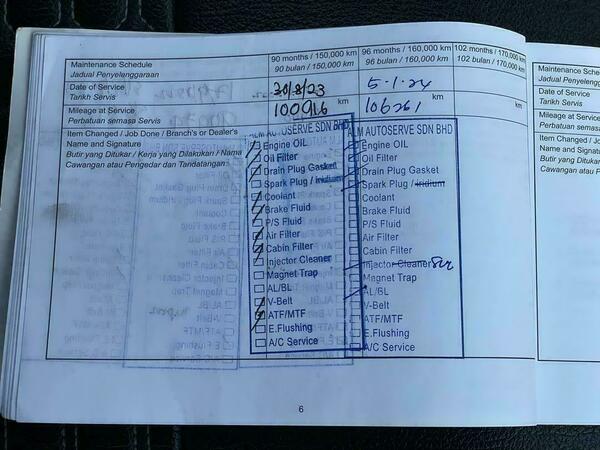 Maintenance Schedule
Jadual Penyelenggaraan
90 months / 150,000 km
90 bulan / 150,000 km
96 months / 160,000 km
96 bulan / 160,000 km
102 months / 170,000 km
102 bulan / 170,000 km
Maintenance
Jadual Penyele
Date of Service
Tarikh Servis
30/8/23
5.1.24
Date of Service
Tarikh Servis
Mileage at Service
Perbatuan semasa Servis
100916 km
106261 km
km
Mileage at Serv
Perbatuan sem
Item Changed / Job Done / Branch's or Dealer's
Name and Signature
Butir yang Ditukar / Kerja yang Dilakukan / Nama
Cawangan atau Pengedar dan Tandatangan
Item Changed /
Name and Signat
Butir yang Dituka
Cawangan atau P
ALM AUTOSERVE SDN BHD
Engine OIL
Oil Filter
Drain Plug Gasket
Spark Plug / iridium
Coolant
Brake Fluid
P/S Fluid
Air Filter
Cabin Filter
Injector Cleaner
Magnet Trap
AL/BL
V-Belt
ATF/MTF
E.Flushing
A/C Service
ALM AUTOSERVE SDN BHD
Engine OIL
Oil Filter
Drain Plug Gasket
Spark Plug / iridium
Coolant
Brake Fluid
P/S Fluid
Air Filter
Cabin Filter
Injector Cleaner
Magnet Trap
AL/BL
V-Belt
ATF/MTF
E.Flushing
A/C Service
6